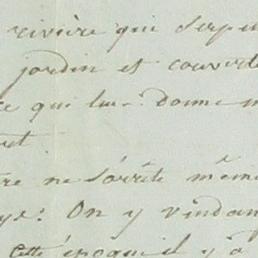 rivière qui serpe
jardin et couvert
ce qui lui donne
ne s'arrête même
On y vendan
Cette époque il y a